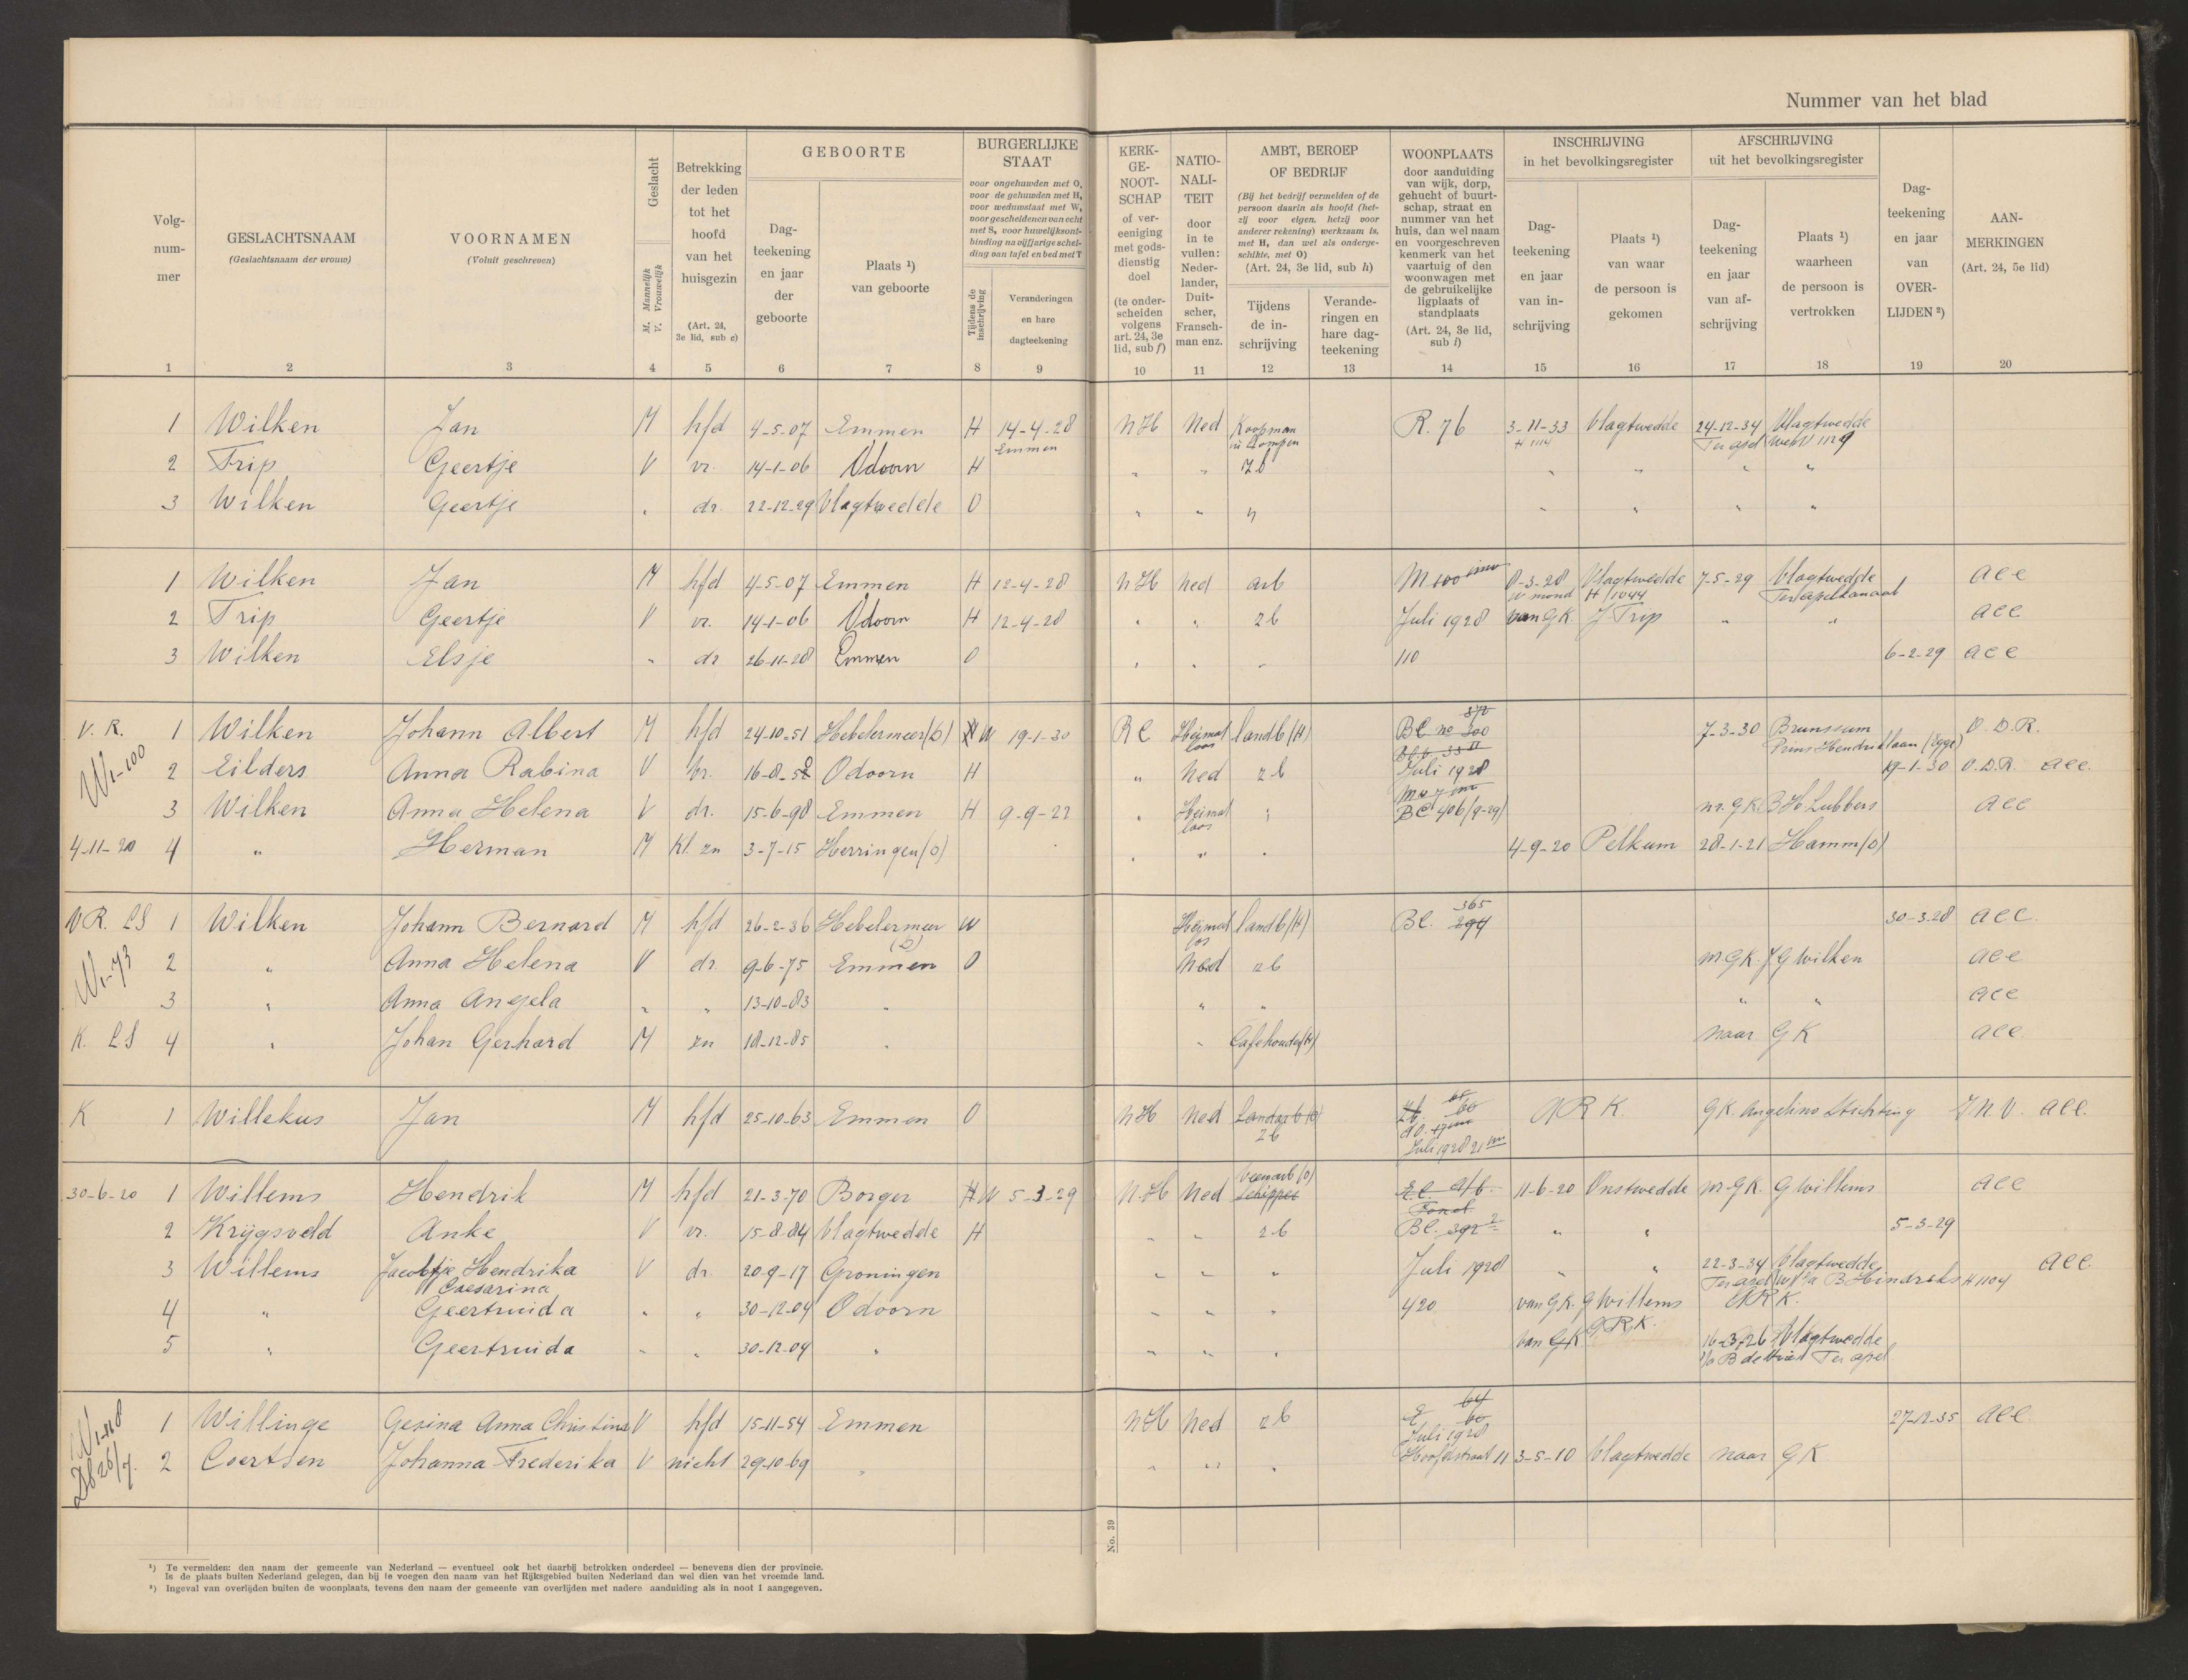 Nummer van het blad
Volg-
num-
mer
GESLACHTSNAAM
(Geslachtsnaam der vrouw)
VOORNAMEN
(Voluit geschreven)
Geslacht
M. Mannelijk
V. Vrouwelijk
Betrekking
der leden
tot het
hoofd
van het
huisgezin
(Art. 24,
3e lid, sub c)
GEBOORTE
Dag-
teekening
en jaar
der
geboorte
Plaats ¹)
van geboorte
BURGERLIJKE
STAAT
voor ongehuwden met O,
voor de gehuwden met H,
voor weduwstaat met W,
voor gescheidenen van echt
met S, voor huwelijksont-
binding na vijfjarige schei-
ding van tafel en bed met T
Tijdens de
inschrijving
Veranderingen
en hare
dagteekening
KERK-
GE-
NOOT-
SCHAP
of ver-
eeniging
met gods-
dienstig
doel
(te onder-
scheiden
volgens
art. 24, 3e
lid, sub f)
NATIO-
NALI-
TEIT
door
in te
vullen:
Neder-
lander,
Duit-
scher,
Fransch-
man enz.
AMBT, BEROEP
OF BEDRIJF
(Bij het bedrijf vermelden of de
persoon daarin als hoofd (het-
zij voor eigen, hetzij voor
anderer rekening) werkzaam is,
met H, dan wel als onderge-
schikte, met O)
(Art. 24, 3e lid, sub h)
Tijdens
de in-
schrijving
Verande-
ringen en
hare dag-
teekening
WOONPLAATS
door aanduiding
van wijk, dorp,
gehucht of buurt-
schap, straat en
nummer van het
huis, dan wel naam
en voorgeschreven
kenmerk van het
vaartuig of den
woonwagen met
de gebruikelijke
ligplaats of
standplaats
(Art. 24, 3e lid,
sub i)
INSCHRIJVING
in het bevolkingsregister
Dag-
teekening
en jaar
van in-
schrijving
Plaats ¹)
van waar
de persoon is
gekomen
AFSCHRIJVING
uit het bevolkingsregister
Dag-
teekening
en jaar
van af-
schrijving
Plaats ¹)
waarheen
de persoon is
vertrokken
Dag-
teekening
en jaar
van
OVER-
LIJDEN ²)
AAN-
MERKINGEN
(Art. 24, 5e lid)
1 2 3 4 5 6 7 8 9 10 11 12 13 14 15 16 17 18 19 20
1 Wilken Jan M hfd 4-5-07 Emmen H 14-4-28 Emmen NH Ned Koopman in Lompen R. 76 3-11-33 H 1114 Vlagtwedde 24-12-34 Vlagtwedde Ter apel
2 Trip Geertje V vr. 14-1-06 Odoorn H " " zb " " " "
3 Wilken Geertje " dr. 22-12-29 Vlagtwedde O " " " " " " "
1 Wilken Jan M hfd 4-5-07 Emmen H 12-4-28 NH ned arb M 100 8-3-28 Vlagtwedde H 1044 7-5-29 Vlagtwedde Ter apelkanaal acc
2 Trip Geertje V vr. 14-1-06 Odoorn H 12-4-28 " " zb Juli 1928 van GK J Trip " " acc
3 Wilken Elsje " dr 26-11-28 Emmen O " " " 110 6-2-29 acc
V. R. 1 Wilken Johann Albert M hfd 24-10-51 Hebelermeer (D) H W 19-1-30 RC Heimat loos landb (H) BC no 300 370 7-3-30 Brunssum Prins Hendriklaan O. D. R.
W1-100 2 Eilders Anna Rabina V vr. 16-8-58 Odoorn H " Ned zb Juli 1928 19-1-30 O.D.R. acc.
3 Wilken Anna Helena V dr. 15-6-98 Emmen H 9-9-22 " Heimat loos " BC 406 (9-29) nr. GK B H Lubbers acc
4-11-20 4 " Herman M Kl. zn 3-7-15 Herringen (D) " " " 4-9-20 Pelkum 28-1-21 Hamm (D)
VR. LS 1 Wilken Johann Bernard M hfd 26-2-36 Hebelermeer (D) W Heimat los landb (H) BC. 294 365 30-3-28 acc.
W1-73 2 " Anna Helena V dr. 9-6-75 Emmen O Ned zb nr. GK. J G Wilken acc
3 " Anna Angela " " 13-10-83 " " " " " acc
K. LS 4 " Johan Gerhard M zn 18-12-85 " " Cafehouder (H) naar GK acc.
K 1 Willekus Jan M hfd 25-10-63 Emmen O NH ned Landarb (O) zb Juli 1928 21 A R K. GK. Angelino Stichting J. N. V. acc.
30-6-20 1 Willems Hendrik M hfd 21-3-70 Borger H W 5-3-29 N.H Ned Veenarb (O) Schipper 11-6-20 Onstwedde nr. GK. G Willems acc
2 Krijgsveld Anke V vr. 15-8-84 Vlagtwedde H " " zb BC. 392 " " 5-3-29
3 Willems Jacobtje Hendrika Caesarina V dr. 20-9-17 Groningen " " " Juli 1928 " " 22-3-34 Vlagtwedde Ter apel B. Hindriks H 1104 acc.
4 " Geertruida " " 30-12-04 Odoorn " " " 420 van GK. G Willems ARK.
5 " Geertruida " " 30-12-04 " " " " van GK G.R.K. 16-3-26 Vlagtwedde Ter apel
W1-118 1 Willinge Gesina Anna Christina V hfd 15-11-54 Emmen NH Ned zb E 60 64 Juli 1928 27-12-35 acc.
2 Coertsen Johanna Frederika V nicht 29-10-69 " " " " Hoofdstraat 11 3-5-10 Vlagtwedde naar GK
No. 39
¹) Te vermelden: den naam der gemeente van Nederland — eventueel ook het daarbij betrokken onderdeel — benevens dien der provincie.
Is de plaats buiten Nederland gelegen, dan bij te voegen den naam van het Rijksgebied buiten Nederland dan wel dien van het vreemde land.
²) Ingeval van overlijden buiten de woonplaats, tevens den naam der gemeente van overlijden met nadere aanduiding als in noot 1 aangegeven.